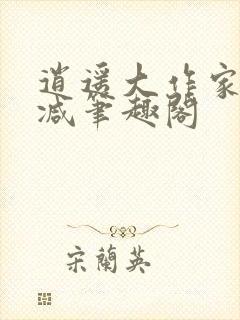 逍遥大作家
减笔趣阁
宋蘭英